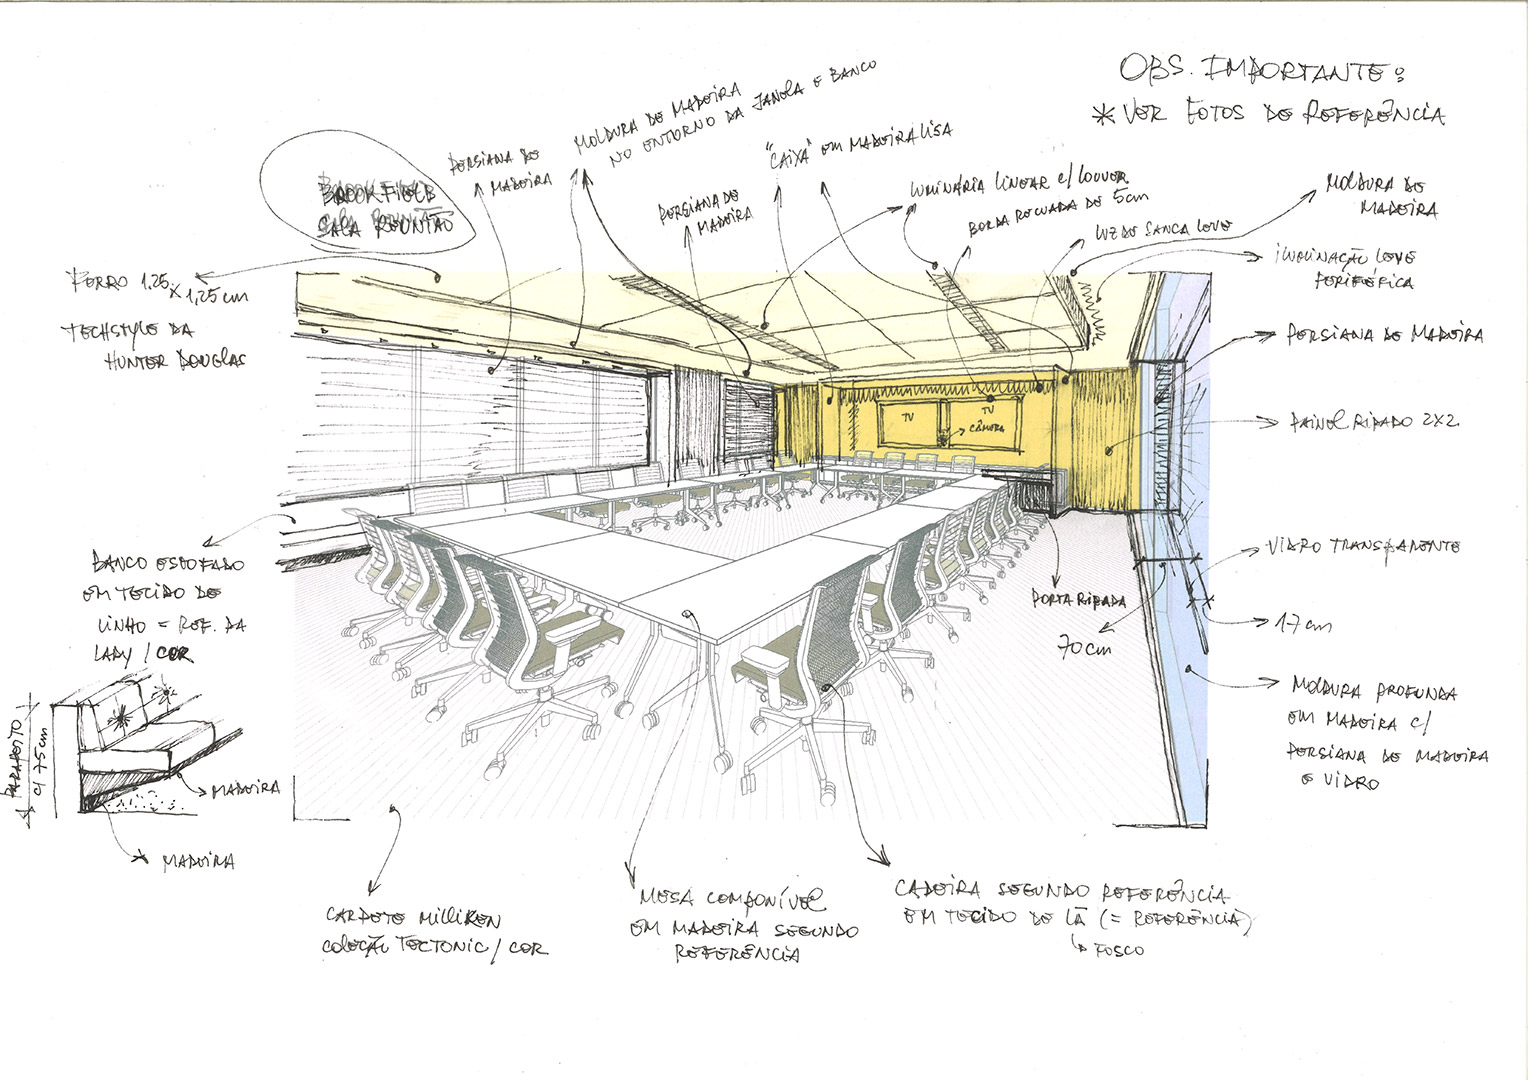 OBS. IMPORTANTE:
* VER FOTOS DE REFERÊNCIA
BROOKFIELD
SALA REUNIÃO
PERSIANA DE
MADEIRA
MOLDURA DE MADEIRA
NO ENTORNO DA JANELA E BANCO
PERSIANA DE
MADEIRA
"CAIXA" EM MADEIRA LISA
LUMINÁRIA LINEAR C/ LOUVER
BORDA RECUADA DE 5cm
LUZ DE SANCA LEVE
MOLDURA DE
MADEIRA
ILUMINAÇÃO LEVE
PERIFÉRICA
FORRO 1.25 x 1,25 cm
TECHSTYLE DA
HUNTER DOUGLAS
PERSIANA DE MADEIRA
PAINEL RIPADO 2X2
TV
TV
CÂMERA
VIDRO TRANSPARENTE
PORTA RIPADA
17cm
70cm
BANCO ESTOFADO
EM TECIDO DE
LINHO = REF. DA
LADY / COR
MOLDURA PROFUNDA
EM MADEIRA C/
PERSIANA DE MADEIRA
E VIDRO
PARAPEITO
C/ 75cm
MADEIRA
MADEIRA
CARPETE MILLIKEN
COLEÇÃO TECTONIC / COR
MESA COMPONÍVEL
EM MADEIRA SEGUNDO
REFERÊNCIA
CADEIRA SEGUNDO REFERÊNCIA
EM TECIDO DE LÃ (= REFERÊNCIA)
FOSCO